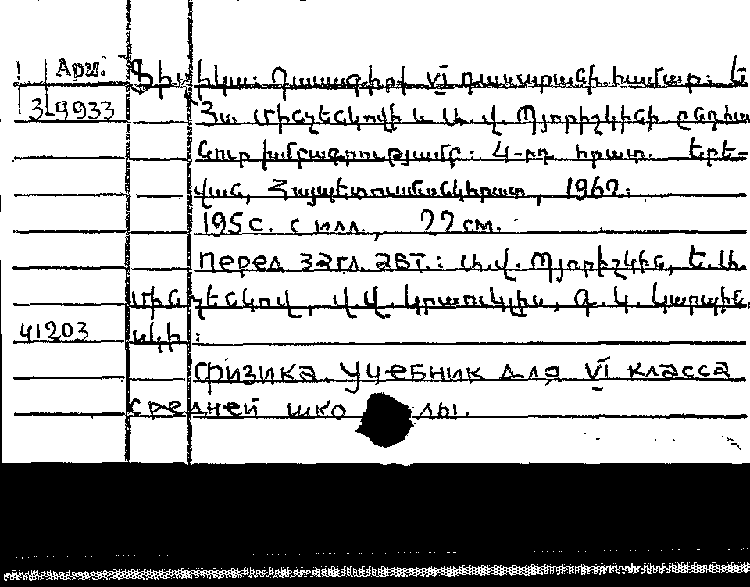 Арм. Ֆիզիկա: Դասագիրք VI դասարանի համար: Ե.
3-4933 Յա. Մինչենկովի և Ա. Վ. Պյորիշկինի ընդհա-
նուր խմբագրությամբ: 4-րդ հրատ. Երե-
վան, Հայպետուսմանկհրատ, 1962:
195 с. с илл., 22 см.
Перед загл. авт.: Ա. Վ. Պյորիշկին, Ե. Յա.
Մինչենկով, Վ. Վ. Կրաուկլիս, Գ. Կ. Կարպին-
41203 սկի:
Физика. Учебник для VI класса
средней школы.